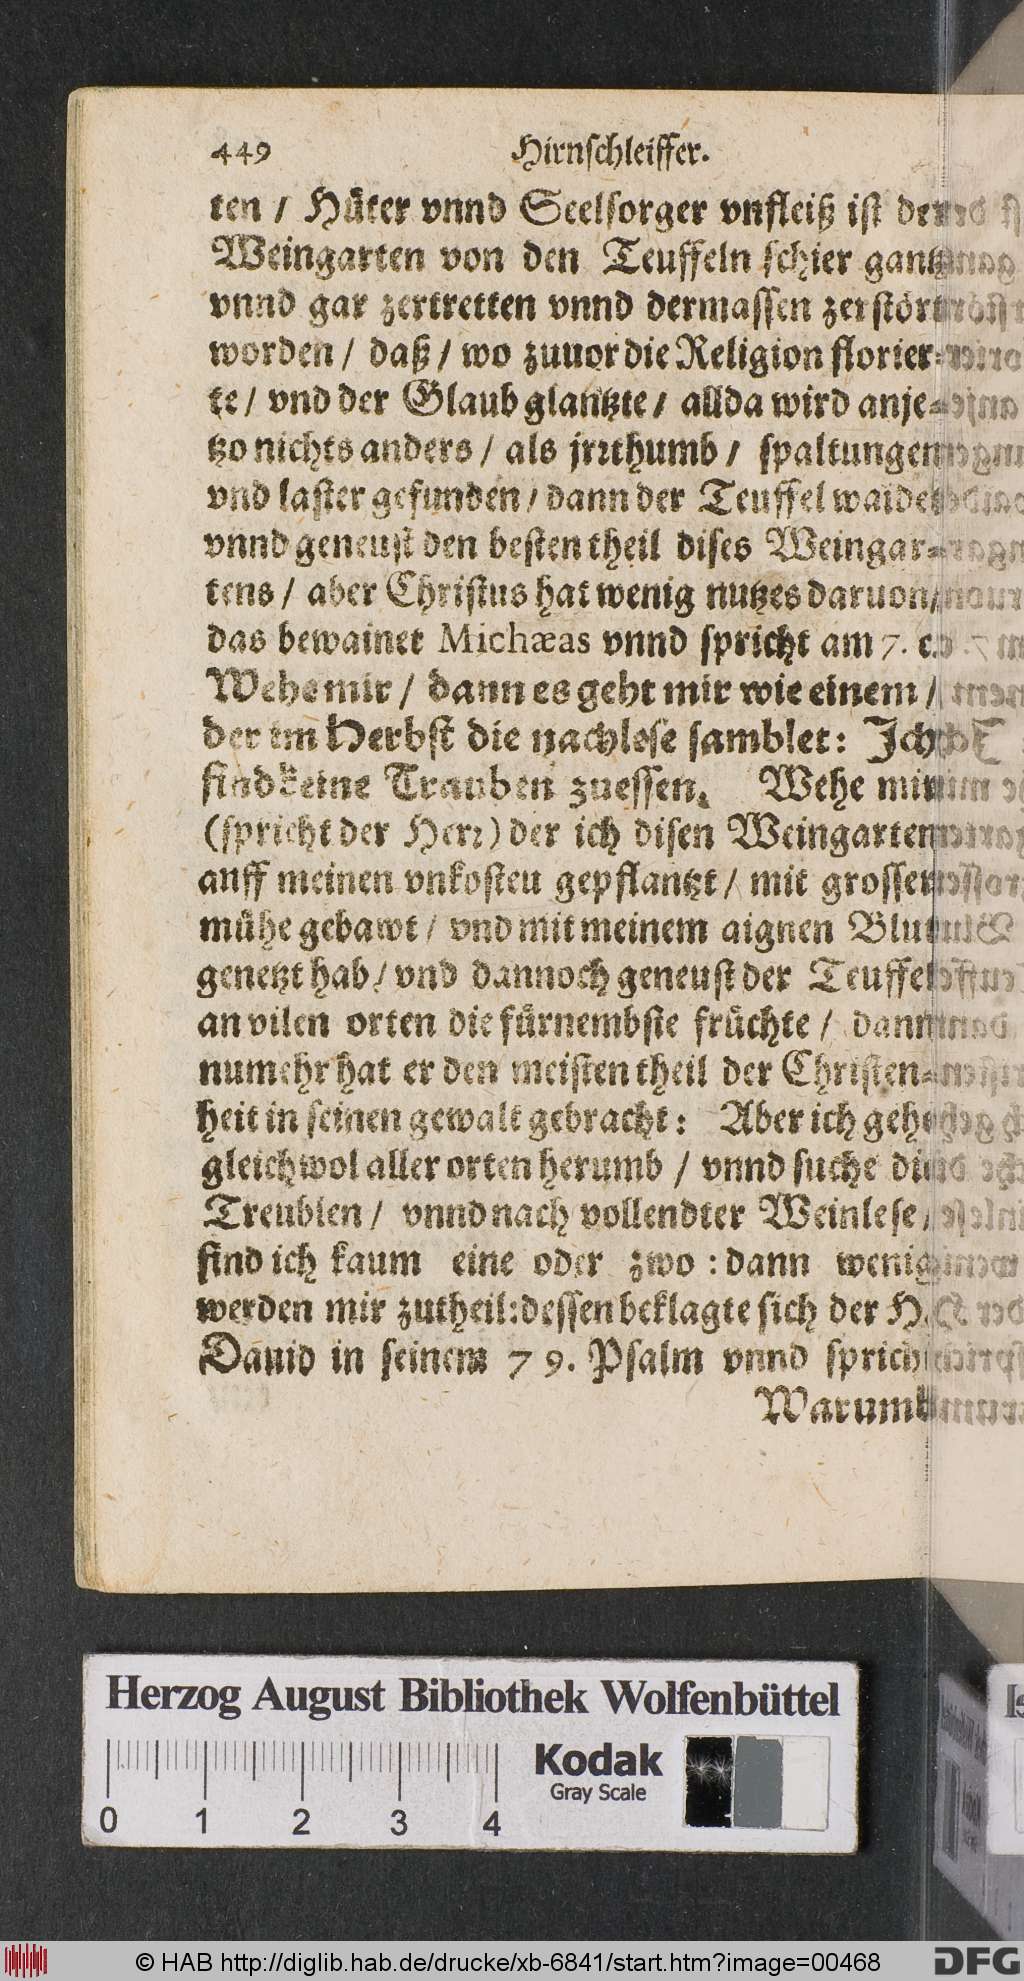 449 Hirnschleiffer.
ten / Hüter vnnd Seelsorger vnfleiß ist der
Weingarten von den Teuffeln schier gantz
vnnd gar zertretten vnnd dermassen zerstört
worden / daß / wo zuuor die Religion florier-
te / vnd der Glaub glantzte / allda wird anje-
tzo nichts anders / als jrrthumb / spaltungen
vnd laster gefunden / dann der Teuffel waidet
vnnd geneust den besten theil dises Weingar-
tens / aber Christus hat wenig nutzes daruon /
das bewainet Michæas vnnd spricht am 7. c.
Wehe mir / dann es geht mir wie einem /
der im Herbst die nachlese samblet: Ich
find keine Trauben zuessen. Wehe mir
(spricht der Herr) der ich disen Weingarten
auff meinen vnkosteu gepflantzt / mit grosser
mühe gebawt / vnd mit meinem aignen Blut
genetzt hab / vnd dannoch geneust der Teuffel
an vilen orten die fürnembste früchte / dann
numehr hat er den meisten theil der Christen-
heit in seinen gewalt gebracht: Aber ich gehe
gleichwol aller orten herumb / vnnd suche die
Treublen / vnnd nach vollendter Weinlese /
find ich kaum eine oder zwo : dann wenig
werden mir zutheil: dessen beklagte sich der H.
Dauid in seinem 79. Psalm vnnd spricht
Warumb
Herzog August Bibliothek Wolfenbüttel
Kodak
Gray Scale
0 1 2 3 4
© HAB http://diglib.hab.de/drucke/xb-6841/start.htm?image=00468 DFG